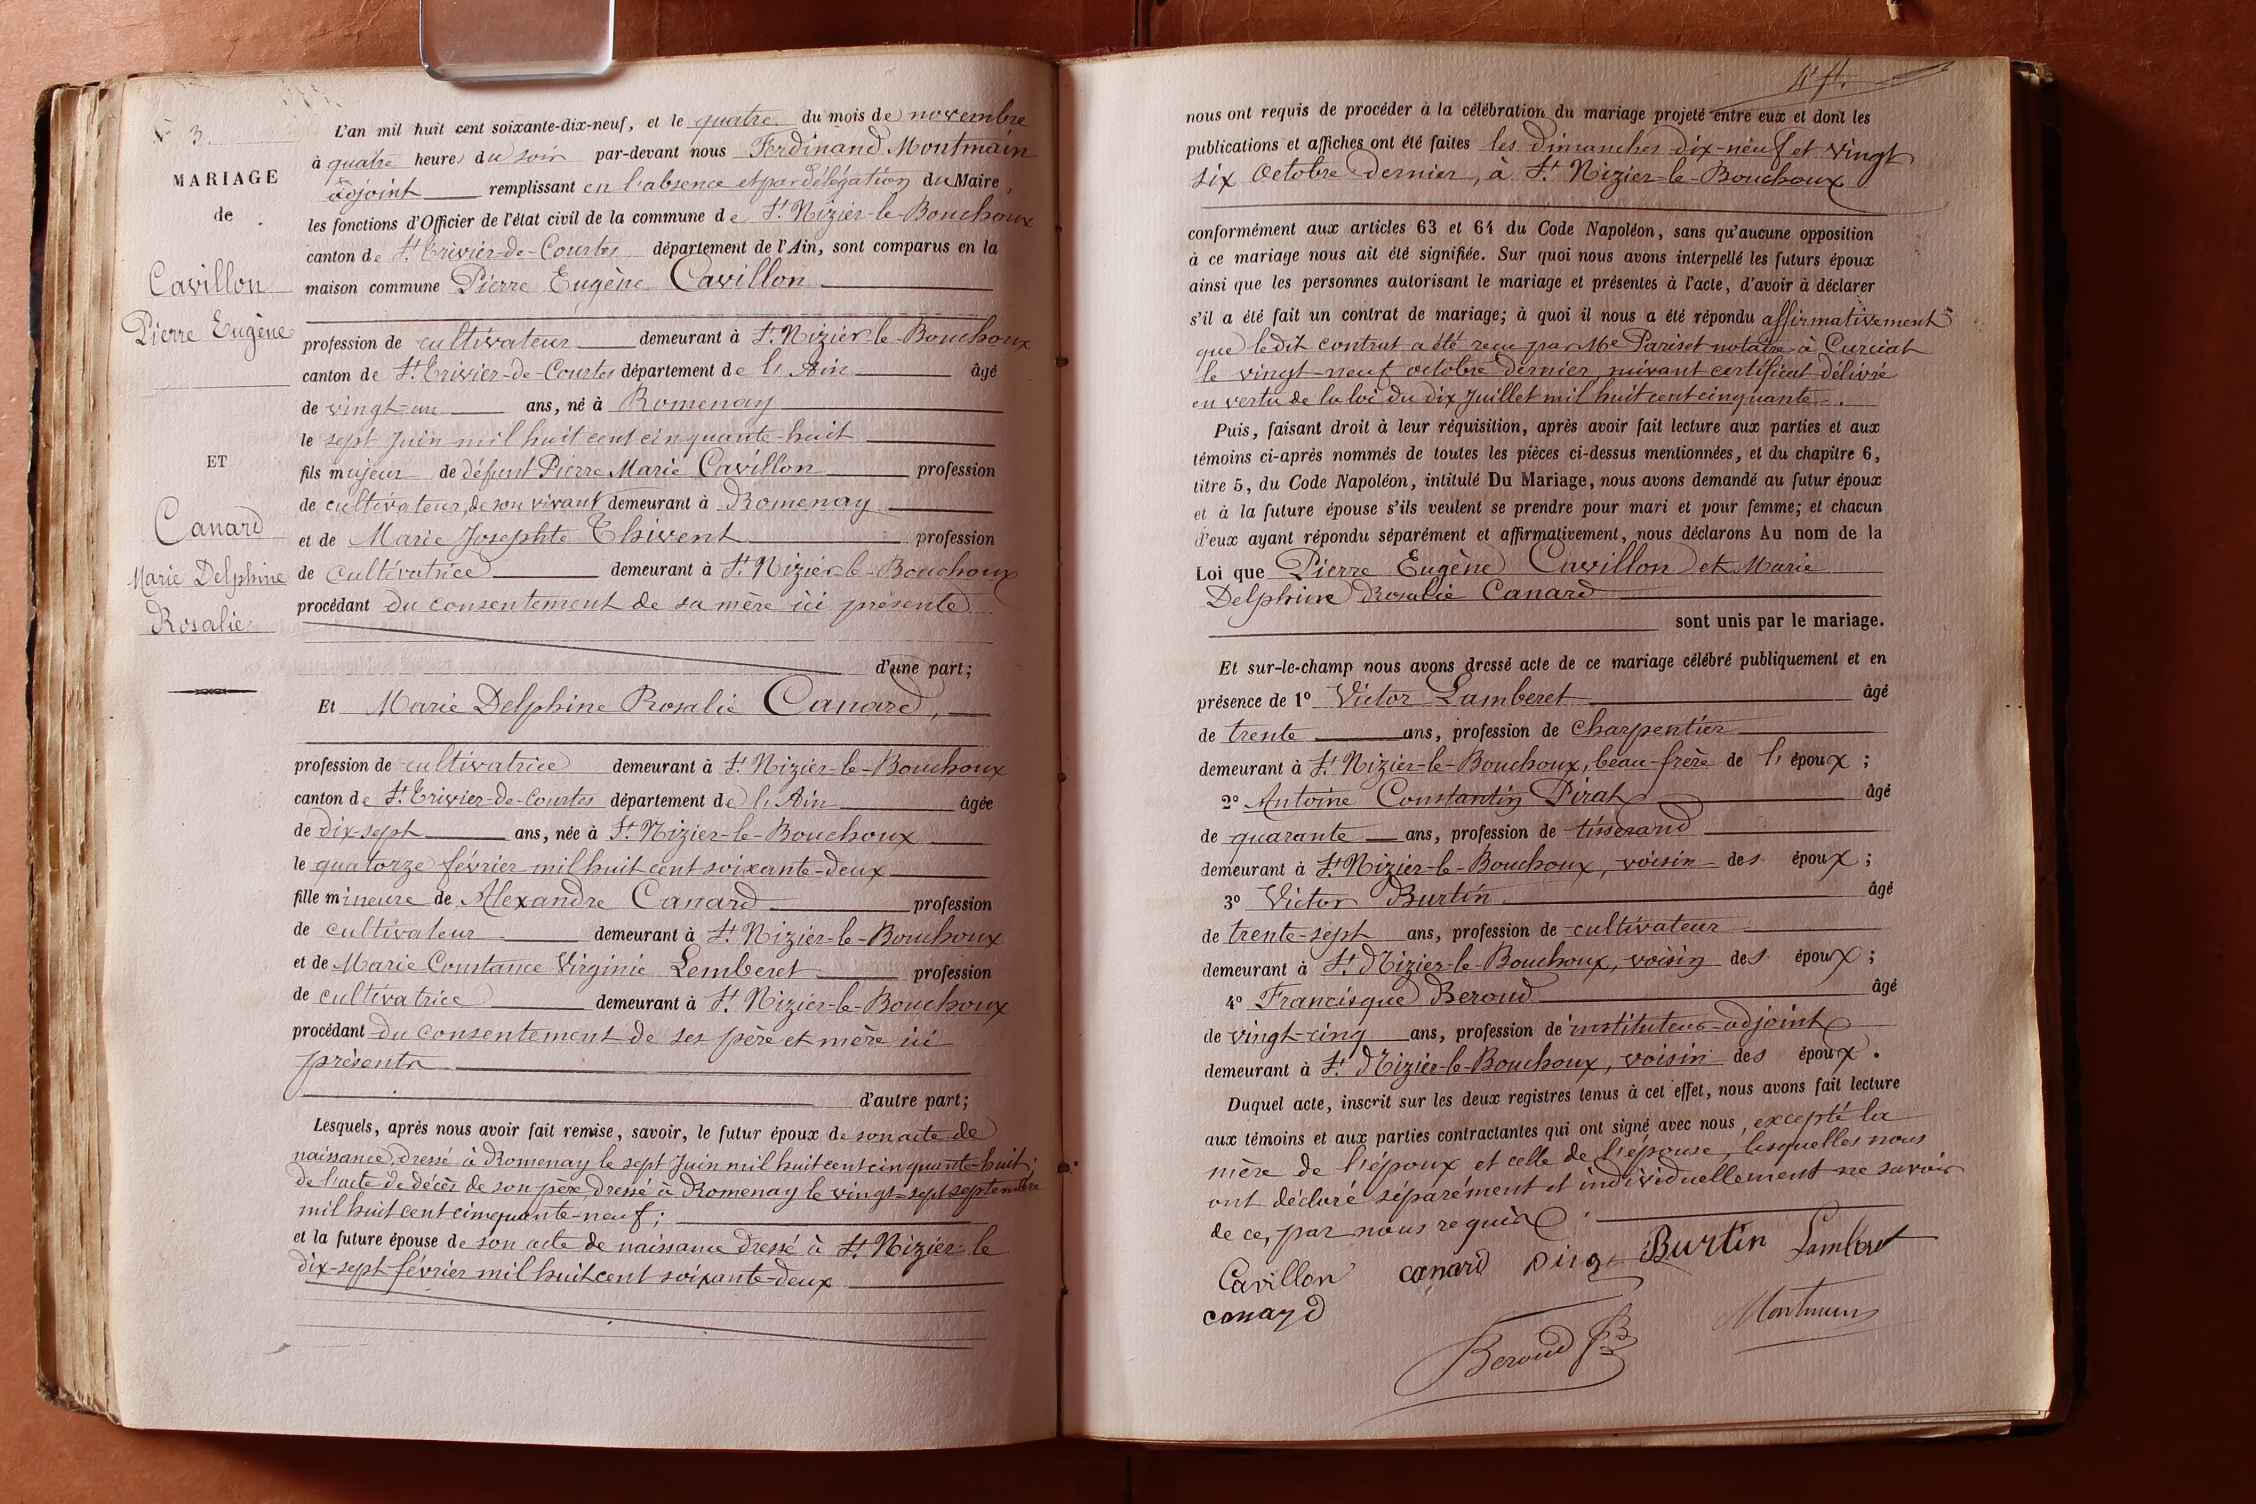 N° 3
MARIAGE
de
Cavillon
Pierre Eugène
ET
Canard
Marie Delphine
Rosalie
L'an mil huit cent soixante-dix-neuf, et le quatre du mois de novembre
à quatre heures du soir par-devant nous Ferdinand Montmain
adjoint remplissant en l'absence et par délégation du Maire,
les fonctions d'Officier de l'état civil de la commune de St Nizier-le-Bouchoux
canton de St Trivier-de-Courtes département de l'Ain, sont comparus en la
maison commune Pierre Eugène Cavillon
profession de cultivateur demeurant à St Nizier-le-Bouchoux
canton de St Trivier-de-Courtes département de l'Ain âgé
de vingt-un ans, né à Romenay
le sept Juin mil huit cent cinquante-huit
fils majeur de défunt Pierre Marie Cavillon profession
de cultivateur, de son vivant demeurant à Romenay
et de Marie Josephte Thivent profession
de cultivatrice demeurant à St Nizier-le-Bouchoux
procédant du consentement de sa mère ici présente
d'une part;
Et Marie Delphine Rosalie Canard,
profession de cultivatrice demeurant à St Nizier-le-Bouchoux
canton de St Trivier-de-Courtes département de l'Ain âgée
de dix-sept ans, née à St Nizier-le-Bouchoux
le quatorze février mil huit cent soixante-deux
fille mineure de Alexandre Canard profession
de cultivateur demeurant à St Nizier-le-Bouchoux
et de Marie Constance Virginie Lemberet profession
de cultivatrice demeurant à St Nizier-le-Bouchoux
procédant du consentement de ses père et mère ici
présents
d'autre part;
Lesquels, après nous avoir fait remise, savoir, le futur époux de son acte de
naissance, dressé à Romenay le sept Juin mil huit cent cinquante-huit;
de l'acte de décès de son père, dressé à Romenay le vingt-sept septembre
mil huit cent cinquante-neuf;
et la future épouse de son acte de naissance dressé à St Nizier le
dix-sept février mil huit cent soixante-deux
nous ont requis de procéder à la célébration du mariage projeté entre eux et dont les
publications et affiches ont été faites les dimanches dix-neuf et vingt
six Octobre dernier, à St Nizier-le-Bouchoux
conformément aux articles 63 et 64 du Code Napoléon, sans qu'aucune opposition
à ce mariage nous ait été signifiée. Sur quoi nous avons interpellé les futurs époux
ainsi que les personnes autorisant le mariage et présentes à l'acte, d'avoir à déclarer
s'il a été fait un contrat de mariage; à quoi il nous a été répondu affirmativement
que ledit contrat a été reçu par Me Pariset notaire à Curciat
le vingt-neuf octobre dernier, suivant certificat délivré
en vertu de la loi du dix Juillet mil huit cent cinquante.
Puis, faisant droit à leur réquisition, après avoir fait lecture aux parties et aux
témoins ci-après nommés de toutes les pièces ci-dessus mentionnées, et du chapitre 6,
titre 5, du Code Napoléon, intitulé Du Mariage, nous avons demandé au futur époux
et à la future épouse s'ils veulent se prendre pour mari et pour femme; et chacun
d'eux ayant répondu séparément et affirmativement, nous déclarons Au nom de la
Loi que Pierre Eugène Cavillon et Marie
Delphine Rosalie Canard
sont unis par le mariage.
Et sur-le-champ nous avons dressé acte de ce mariage célébré publiquement et en
présence de 1° Victor Lamberet âgé
de trente ans, profession de charpentier
demeurant à St Nizier-le-Bouchoux, beau-frère de l'époux;
2° Antoine Constantin Pirat âgé
de quarante ans, profession de tisserand
demeurant à St Nizier-le-Bouchoux, voisin des époux;
3° Victor Burtin âgé
de trente-sept ans, profession de cultivateur
demeurant à St Nizier-le-Bouchoux, voisin des époux;
4° Francisque Beroud âgé
de vingt-cinq ans, profession de instituteur-adjoint
demeurant à St Nizier-le-Bouchoux, voisin des époux.
Duquel acte, inscrit sur les deux registres tenus à cet effet, nous avons fait lecture
aux témoins et aux parties contractantes qui ont signé avec nous, excepté la
mère de l'époux et celle de l'épouse, lesquelles nous
ont déclaré séparément et individuellement ne savoir
de ce, par nous requis.
Cavillon canard Burtin Lamberet
canard
Montmain
Beroud